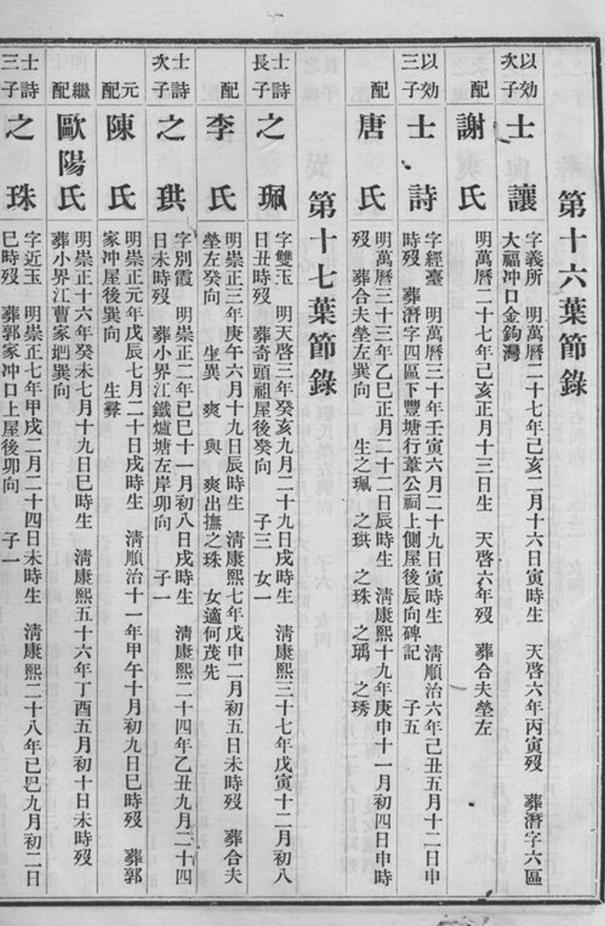 第十六葉節錄
以効次子 士讓 字義所 明萬曆二十七年己亥二月十六日寅時生 天啓六年丙寅歿 葬潛字六區
大福冲口金鉤灣
配 謝氏 明萬曆二十七年己亥正月十三日生 天啓六年歿 葬合夫塋左
以効三子 士詩 字經臺 明萬曆三十年壬寅六月二十九日寅時生 清順治六年己丑五月十二日申
時歿 葬潛字四區下豐塘行葦公祠上側屋後辰向碑記 子五
配 唐氏 明萬曆三十三年乙巳正月二十二日辰時生 清康熙十九年庚申十一月初四日申時
歿 葬合夫塋左巽向 生之珮 之珙 之珠 之瑀 之琇
第十七葉節錄
士詩長子 之珮 字雙玉 明天啓三年癸亥九月二十九日戌時生 清康熙三十七年戊寅十二月初八
日丑時歿 葬奇頭祖屋後癸向 子三 女一
配 李氏 明崇正三年庚午六月十九日辰時生 清康熙七年戊申二月初五日未時歿 葬合夫
塋左癸向 生巽 爽 與 爽出撫之珠 女適何茂先
士詩次子 之珙 字別霞 明崇正二年己巳十一月初八日戌時生 清康熙二十四年乙丑九月二十四
日未時歿 葬小界江鐵爐塘左岸卯向 子一
元配 陳氏 明崇正元年戊辰七月二十日戌時生 清順治十一年甲午十月初九日巳時歿 葬郭
家冲屋後巽向 生彛
繼配 歐陽氏 明崇正十六年癸未七月十九日巳時生 清康熙五十六年丁酉五月初十日未時歿
葬小界江曹家垻巽向
士詩三子 之珠 字近玉 明崇正七年甲戌二月二十四日未時生 清康熙二十八年己巳九月初二日
巳時歿 葬郭家冲口上屋後卯向 子一